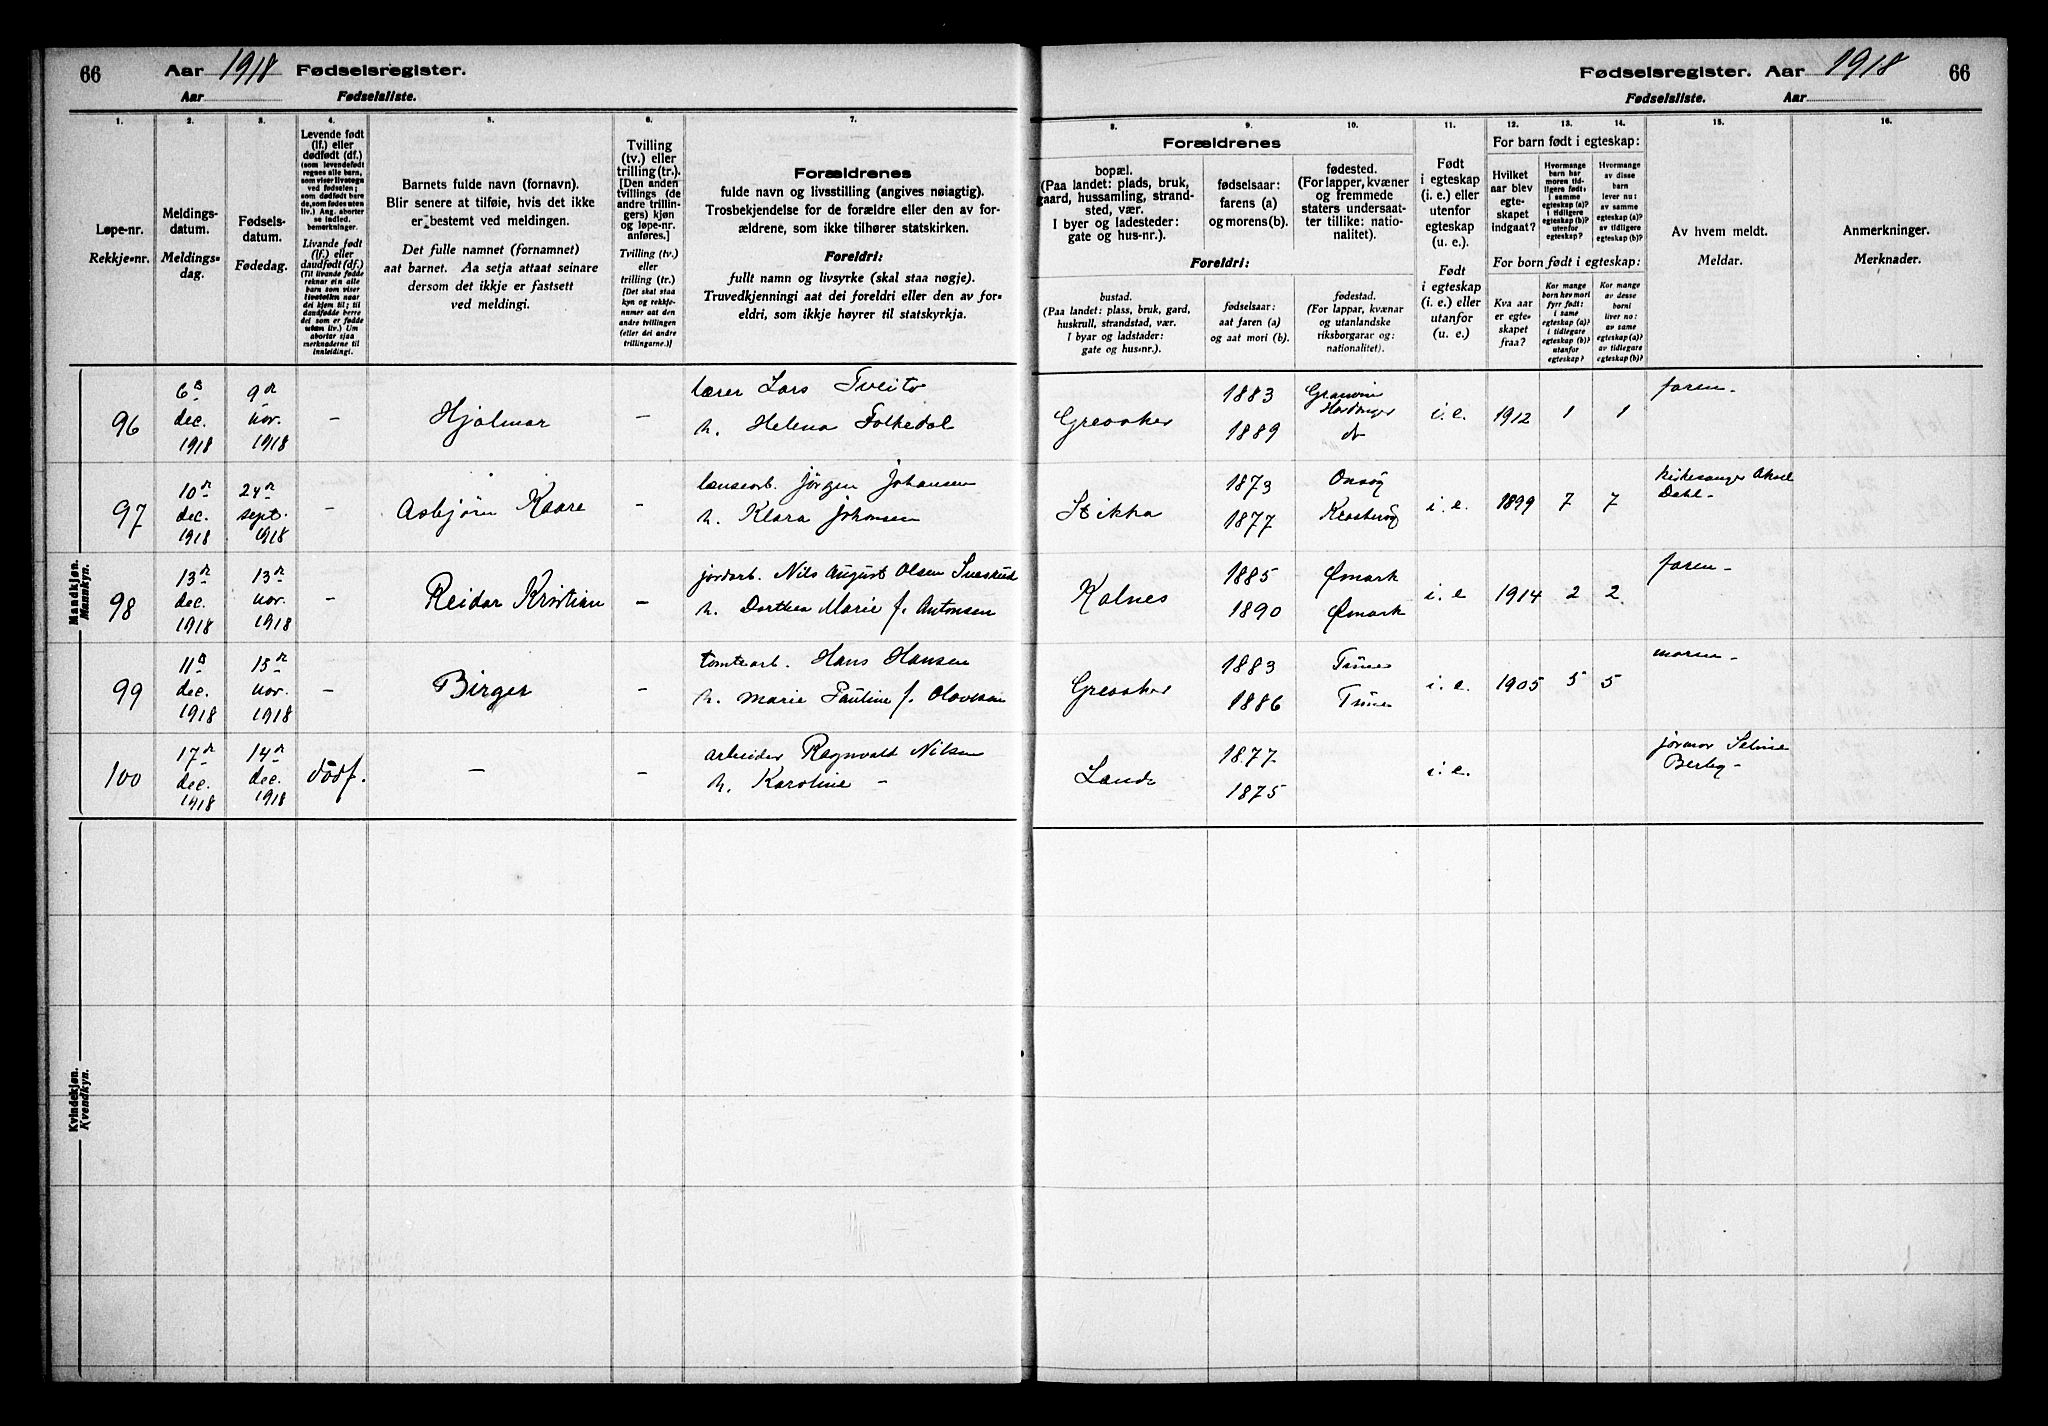 66 Aar 1918 Fødselsregister.
Aar Fødselsliste.
Fødselsregister. Aar 1918 66
Fødselsliste. Aar
1. 2. 3. 4. 5. 6. 7.
Løpe-nr.
Rekkje-nr.
Meldings-
datum.
Meldings-
dag.
Fødsels-
datum.
Fødedag.
Levende født
(lf.) eller
dødfødt (df.)
(som levendefødt
regnes alle barn,
som viser livstegn
ved fødselen;
som dødfødt bare
de, som fødes uten
liv.) Ang. aborter
se indled.
bemerkninger.
Livande født
(lf.) eller
daudfødt (df.)
(Til livande fødde
reknar ein alle
barn som viser
livsteiken naar
dei kjem til; til
daudfødde berre
dei som er fødde
utan liv.) Um
abortar sjaa
merknaderne til
innleidingi.
Barnets fulde navn (fornavn).
Blir senere at tilføie, hvis det ikke
er bestemt ved meldingen.
Det fulle namnet (fornamnet)
aat barnet. Aa setja attaat seinare
dersom det ikkje er fastsett
ved meldingi.
Tvilling
(tv.) eller
trilling (tr.).
[Den anden
tvillings (de
andre trillin-
gers) kjøn
og løpe-nr.
anføres.]
Tvilling (tv.)
eller
trilling (tr.)
[Det skal staa
kyn og rekkje-
numer aat den
andre tvillingen
(eller dei andre
trillingarne.)]
Forældrenes
fulde navn og livsstilling (angives nøiagtig).
Trosbekjendelse for de forældre eller den av for-
ældrene, som ikke tilhører statskirken.
Foreldri:
fullt namn og livsyrke (skal staa nøgje).
Truvedkjenningi aat dei foreldri eller den av for-
eldri, som ikkje høyrer til statskyrkja.
8. 9. 10. 11. 12. 13. 14. 15. 16.
Forældrenes
bopæl.
(Paa landet: plads, bruk,
gaard, hussamling, strand-
sted, vær.
I byer og ladesteder:
gate og hus-nr.).
fødselsaar:
farens (a)
og morens(b).
fødested.
(For lapper, kvæner
og fremmede
staters undersaat-
ter tillike: natio-
nalitet).
Foreldri:
bustad.
(Paa landet: plass, bruk, gard,
huskrull, strandstad, vær.
I byar og ladstader:
gate og hus-nr.).
fødselsaar:
aat faren (a)
og aat mori (b).
fødestad.
(For lappar, kvænar
og utanlandske
riksborgarar og:
nationalitet).
Født
i egteskap
(i. e.) eller
utenfor
egteskap
(u. e.).
Født
i egteskap
(i. e.) eller
utanfor
(u. e.).
For barn født i egteskap:
Hvilket
aar blev
egte-
skapet
indgaat?
Hvormange
barn har
moren tid-
ligere født,
i samme
egteskap (a)?
i tidligere
egteskap (b)?
utenfor
egteskap?
Hvormange
av disse
barn
lever nu:
av samme
egteskap (a)?
av tidligere
egteskap (b)?
For born født i egteskap:
Kva aar
er egte-
skapet
fraa?
Kor mange
born hev mori
fyrr født:
i same
egteskap (a)?
i tidlegare
egteskap (b)?
utanfor
egteskap?
Kor mange
av desse
borni
liver no:
av same
egteskap (a)?
av tidlegare
egteskap (b)?
Av hvem meldt.
Meldar.
Anmerkninger.
Merknader.
Mandkjøn.
Mannkyn.
96 6 dec. 1918 9 nov. 1918 – Hjalmar – lærer Lars Tveito
h. Helena Folkedal
Greaaker 1883 1889 Granvin Hardanger do i. e. 1912 1 1 faren –
97 10 dec. 1918 24 sept. 1918 – Asbjørn Kaare – lænsearb. Jörgen Johansen
h. Klara Johansen
Stikka 1873 1877 Onsöy i. e. 1899 7 7 kirkesanger Aksel
Dahl –
98 13 dec. 1918 13 nov. 1918 – Reidar Kristian – jordarb. Nils August Olsen
h. Dorthea Marie f. Antonsen
Kalnes 1885 1890 Ømark Ømark i. e 1914 2 2 faren –
99 11 dec. 1918 15 nov. 1918 – Birger – tomtearb. Hans Hansen
h. Marie Pauline f. Olavesen
Greaaker 1883 1886 Tune Tune i. e. 1905 5 5 moren –
100 17 dec. 1918 14 dec. 1918 dödf. – – arbeider Ragnvald Nilsen
h. Karoline –
Lande 1877 1875 i. e. jormor Seline
Berby –
Kvindekjøn.
Kvendkyn.